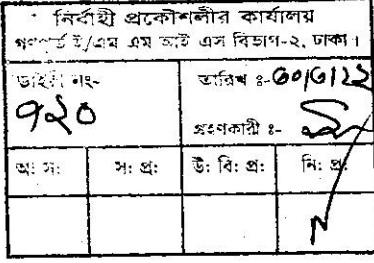 নির্বাহী প্রকৌশলীর কার্যালয়
গণপূর্ত ই/এম এম আই এস বিভাগ-২, ঢাকা।
ডাইরী নং- তারিখ ঃ- ৩০/৫/২২
৭২০
গ্রহণকারী ঃ-
আঃ সঃ সঃ প্রঃ উঃ বিঃ প্রঃ নিঃ প্রঃ